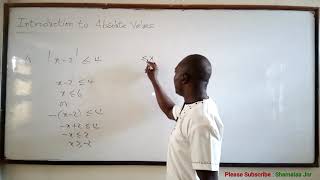 Introduction to Absolute Values
|x-2| ≤ 4
x-2 ≤ 4
x ≤ 6
or
-(x-2) ≤ 4
-x+2 ≤ 4
-x ≤ 2
x ≥ -2
Please Subscribe : Shamalaa Jnr